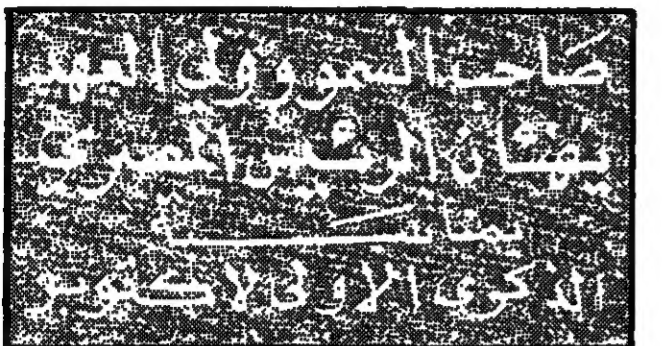 صاحب السمو وولي العهد
يهنئان الرئيس المصري
بمناسبة
الذكرى الأولى لأكتوبر